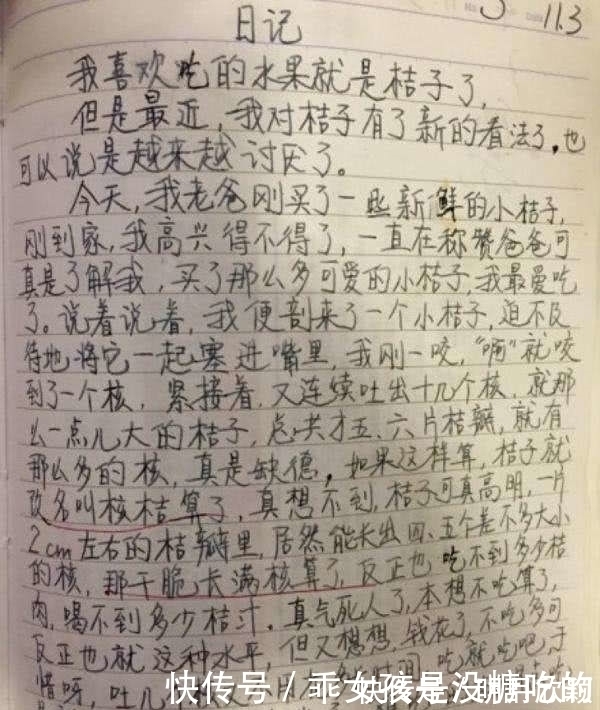 No 3 Date 11.3
日记
我喜欢吃的水果就是桔子了,
但是最近,我对桔子有了新的看法了,也
可以说是越来越讨厌了。
今天,我老爸刚买了一些新鲜的小桔子,
刚到家,我高兴得不得了,一直在称赞爸爸可
真是了解我,买了那么多可爱的小桔子,我最爱吃
了。说着说着,我便剖来了一个小桔子,迫不及
待地将它一起塞进嘴里,我刚一咬,“啊”就咬
到了一个核,紧接着,又连续吐出十几个核,就那
么一点儿大的桔子,总共才五、六片桔瓣,就有
那么多的核,真是缺德,如果这样算,桔子就
改名叫核桔算了,真想不到,桔子可真高明,一片
2cm左右的桔瓣里,居然能长出四、五个差不多大小
的核,那干脆长满核算了,反正也吃不到多少桔
肉,喝不到多少桔汁,真气死人了,本想不吃算了,
反正也就这种水平,但又想想,钱花了,不吃多可
惜呀,吐几 时间,吃就吃吧,于
快传号/乖女孩是没糖吃的